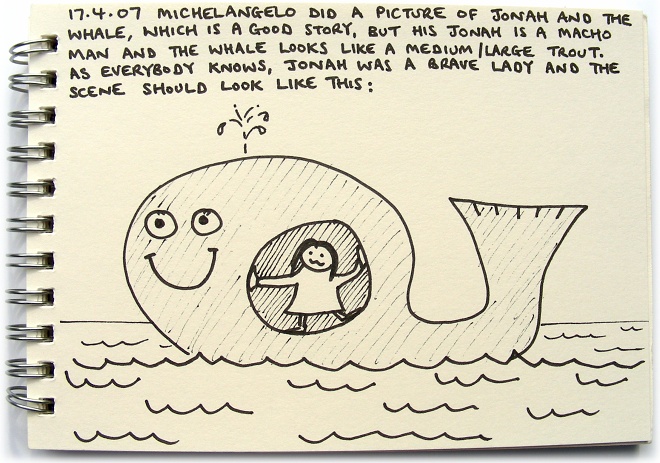 17.4.07 MICHELANGELO DID A PICTURE OF JONAH AND THE
WHALE, WHICH IS A GOOD STORY, BUT HIS JONAH IS A MACHO
MAN AND THE WHALE LOOKS LIKE A MEDIUM/LARGE TROUT.
AS EVERYBODY KNOWS, JONAH WAS A BRAVE LADY AND THE
SCENE SHOULD LOOK LIKE THIS: